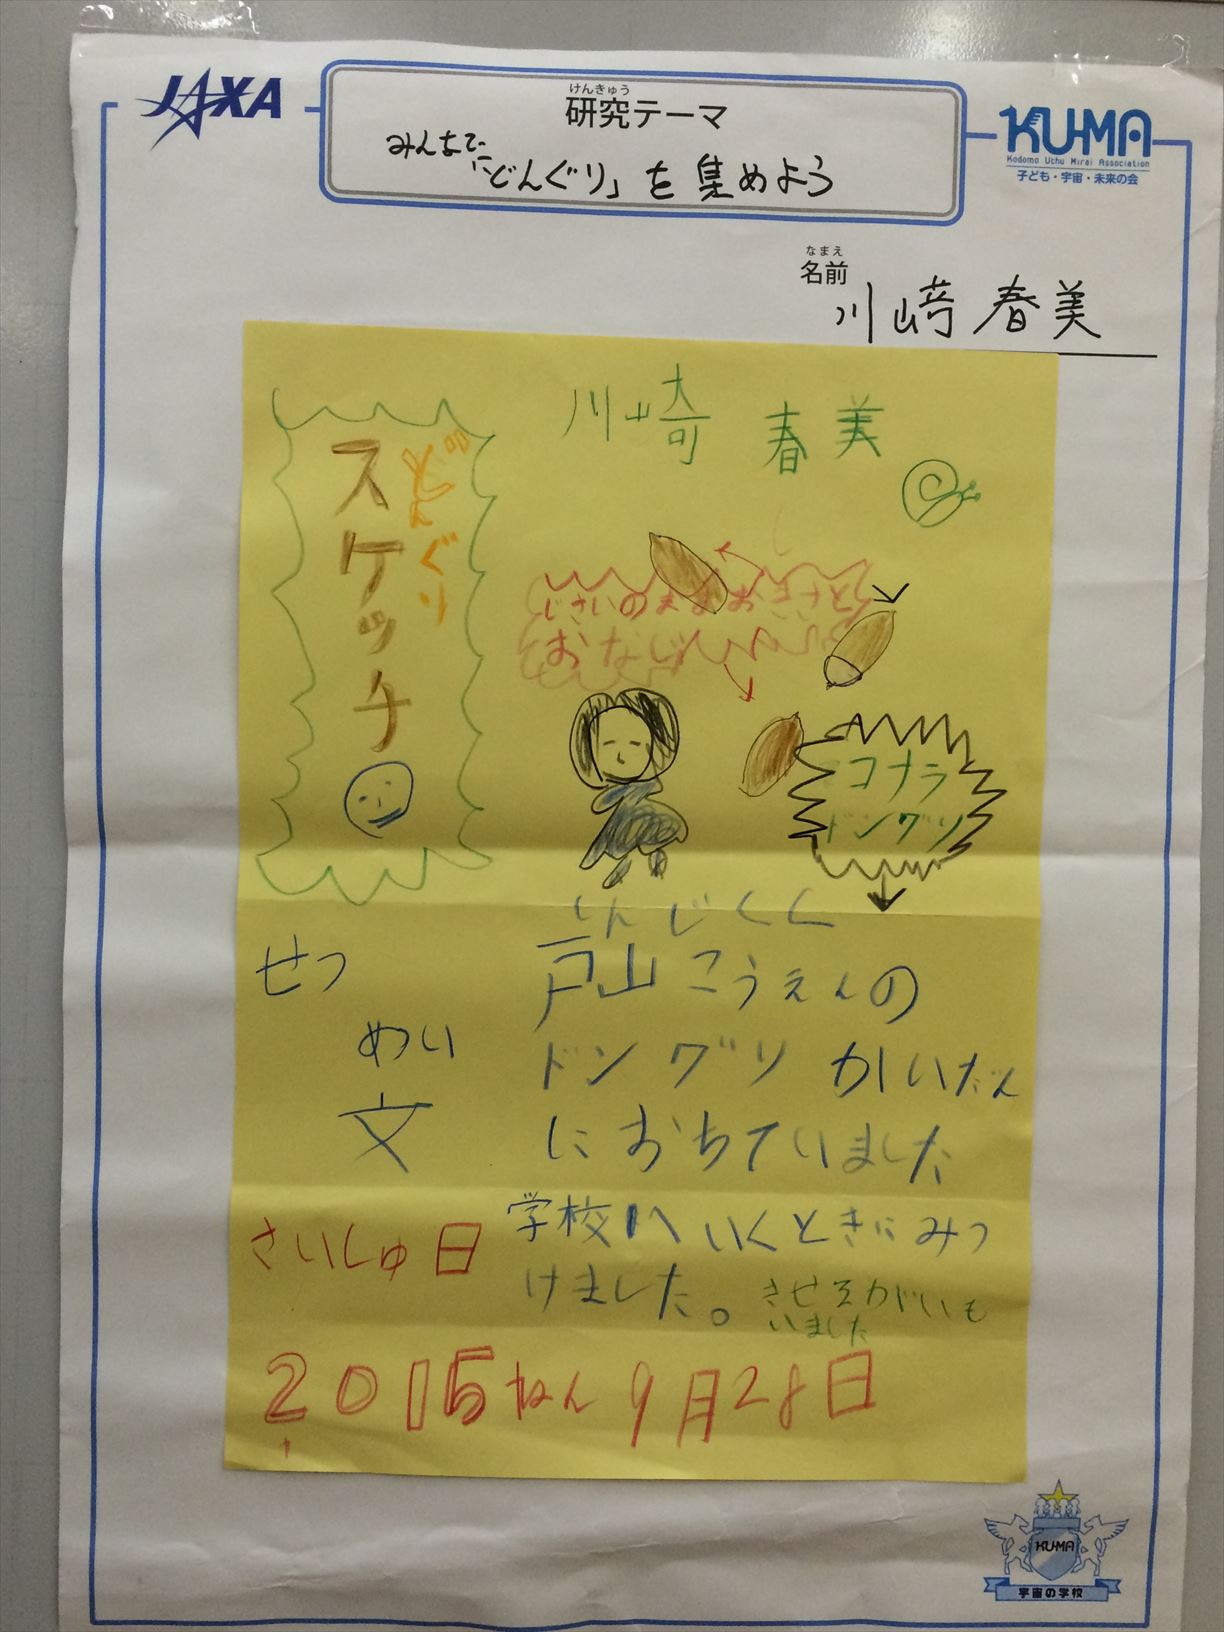 JAXA
けんきゅう
研究テーマ
みんなで
「どんぐり」を集めよう
KU-MA
Kodomo Uchu Mirai Association
子ども・宇宙・未来の会
なまえ
名前
川﨑 春美
川崎 春美
どんぐり
スケッチ
じさいのままおきさと
おなじ
コナラ
ドングリ
しんじくく
戸山こうえんの
ドングリかいだん
におちていました
学校へいくときにみつ
けました。
せつ
めい
文
さいしゅ日
いました
2015ねん9月28日
KU-MA
宇宙の学校